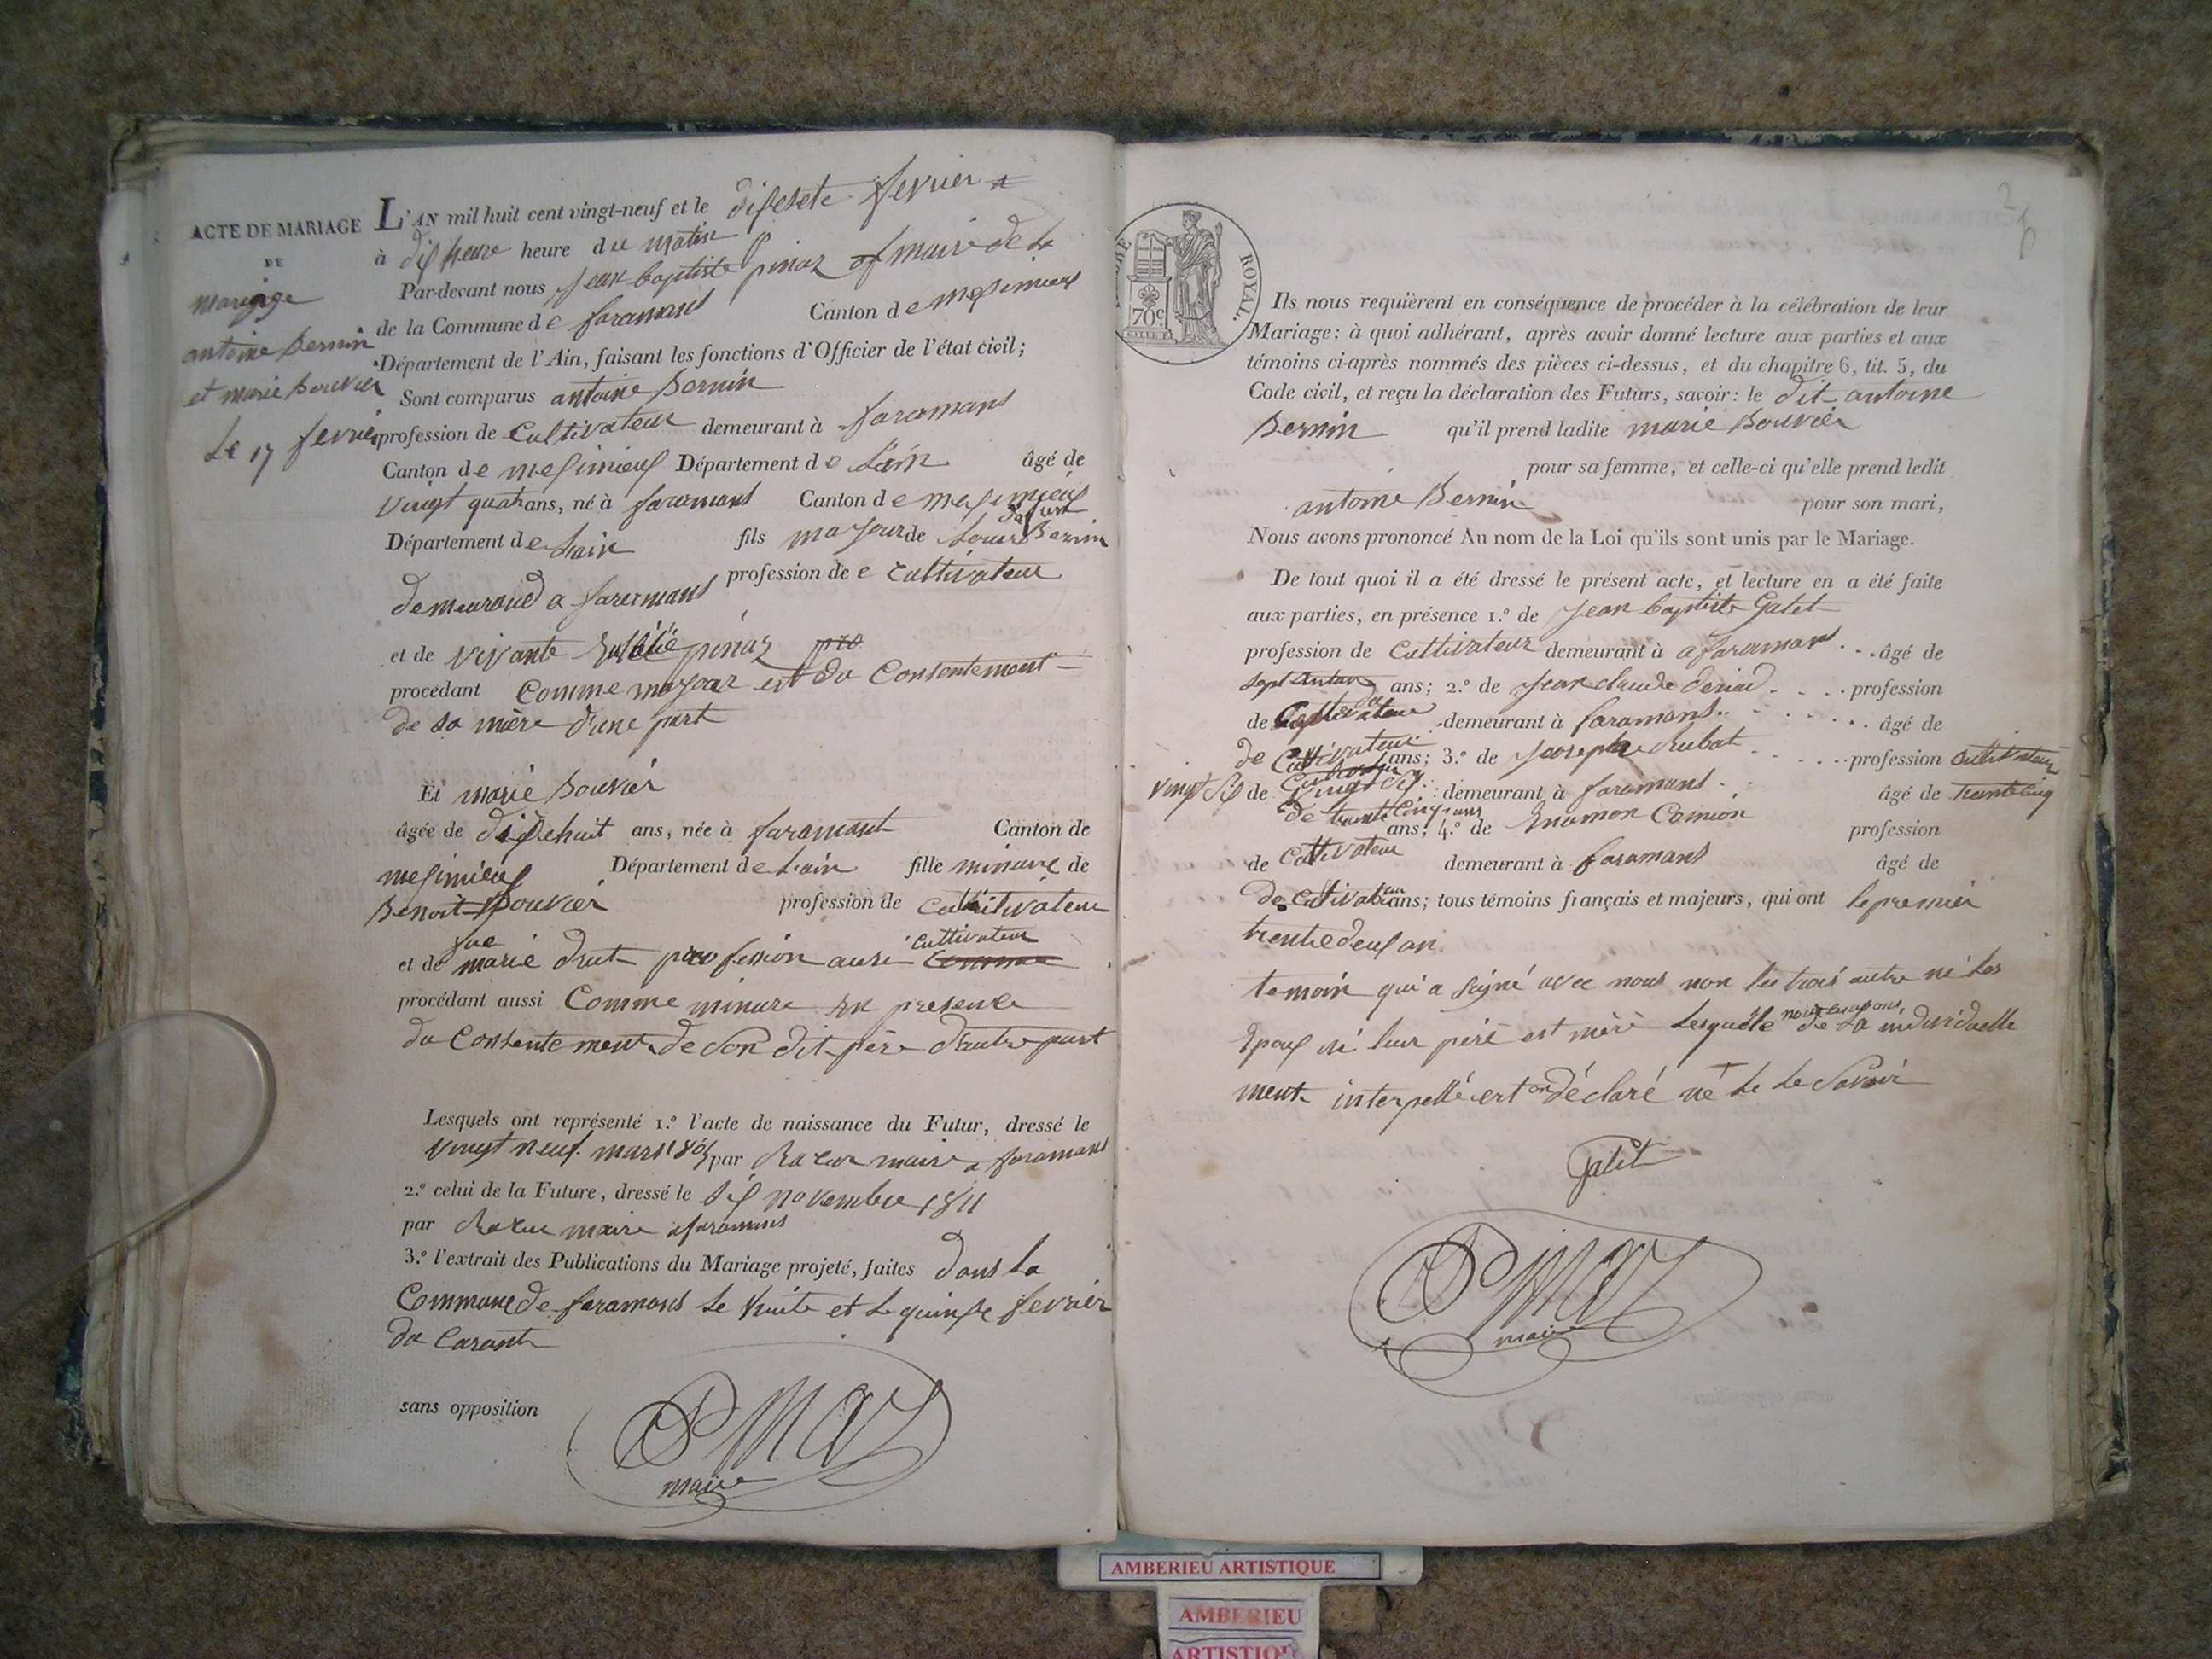 ACTE DE MARIAGE
DE
mariage
antoine Bernin
et marie Bouvier
Le 17 fevrier
L'AN mil huit cent vingt-neuf et le disesete fevrier
à dis heure heure du matin
Par-devant nous jean baptiste pinaz maire de la
de la Commune de faramans Canton de mesimieux
Département de l'Ain, faisant les fonctions d'Officier de l'état civil;
Sont comparus antoine Bernin
profession de Cultivateur demeurant à faramans
Canton de mesimieux Département de Lain âgé de
vingt quatr ans, né à faramans Canton de mesimieux
Département de Lain fils mayour de Louis defunt Bernin
profession de e Cultivateur
demeurand a faramans
et de vivante pinaz
procédant Comme mayour est du Consentement
de sa mère d'une part
Et marie Bouvier
âgée de disehuit ans, née à faramant Canton de
mesimieux Département de Lain fille minure de
Benoit Bouvier profession de Cultivateur
et de fue marie drut profession ausi Cultivateur
procédant aussi Comme minure en presence
du Consentement de son dit père d'autre part
Lesquels ont représenté 1.º l'acte de naissance du Futur, dressé le
vingt neuf mars 1805 par maire a faramans
2.º celui de la Future, dressé le sis novembre 1811
par maire a faramans
3.º l'extrait des Publications du Mariage projeté, faites dans la
Commune de faramans le huite et le quinse fevrier
du Carant
sans opposition
Pinaz
maire
ROYAL.
70c.
Ils nous requièrent en conséquence de procéder à la célébration de leur
Mariage; à quoi adhérant, après avoir donné lecture aux parties et aux
témoins ci-après nommés des pièces ci-dessus, et du chapitre 6, tit. 5, du
Code civil, et reçu la déclaration des Futurs, savoir: le dit antoine
Bernin qu'il prend ladite marie Bouvier
pour sa femme, et celle-ci qu'elle prend ledit
antoine Bernin pour son mari,
Nous avons prononcé Au nom de la Loi qu'ils sont unis par le Mariage.
De tout quoi il a été dressé le présent acte, et lecture en a été faite
aux parties, en présence 1.º de jean baptiste Galet
profession de Cultivateur demeurant à a faramans âgé de
ans; 2.º de jean claude deriad profession
de Cultivateur demeurant à faramans âgé de
de Cultivateur ans; 3.º de joseph Rubat profession Cultivateur
vingt sis de vingt sis demeurant à faramans âgé de trente cinq
de trente cinq ans
ans; 4.º de Enamon Camion profession
de Cultivateur demeurant à faramans âgé de
de Cultivateur ans; tous témoins français et majeurs, qui ont le premier
trente deux an
temoin qui a signé avec nous non les trois autre ni les
Epoux ni leur père est mère lesquele nous les avons de sa individuelle
ment interpellé est on déclaré né le le Savoir
Galet
Pinaz
maire
AMBERIEU ARTISTIQUE
AMBERIEU
ARTISTIQUE